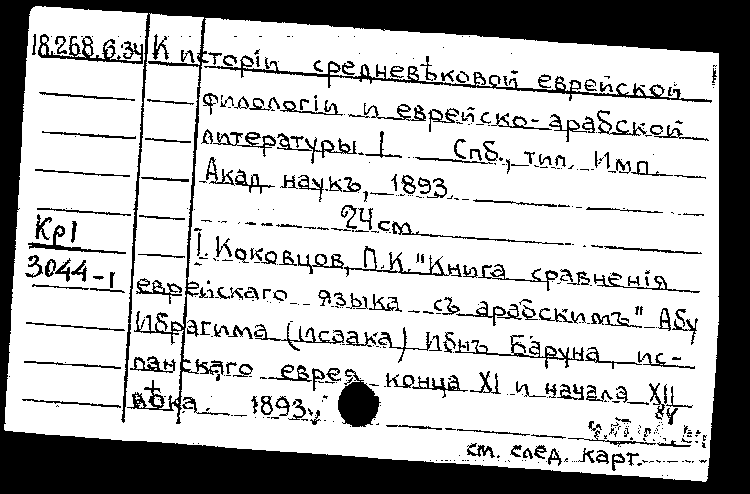 18.268.6.34 К исторіи средневѣковой еврейской
филологіи и еврейско-арабской
литературы I Спб., тип. Имп.
Акад наукъ, 1893
24 см.
КрI
I. Коковцов, П.К. "Книга сравненія
3044-I
еврейскаго языка съ арабскимъ" Абу
Ибрагима (Исаака) Ибнъ Баруна, ис-
панскаго еврея конца XI и начала XII
вѣка. 1893.
см. след. карт.